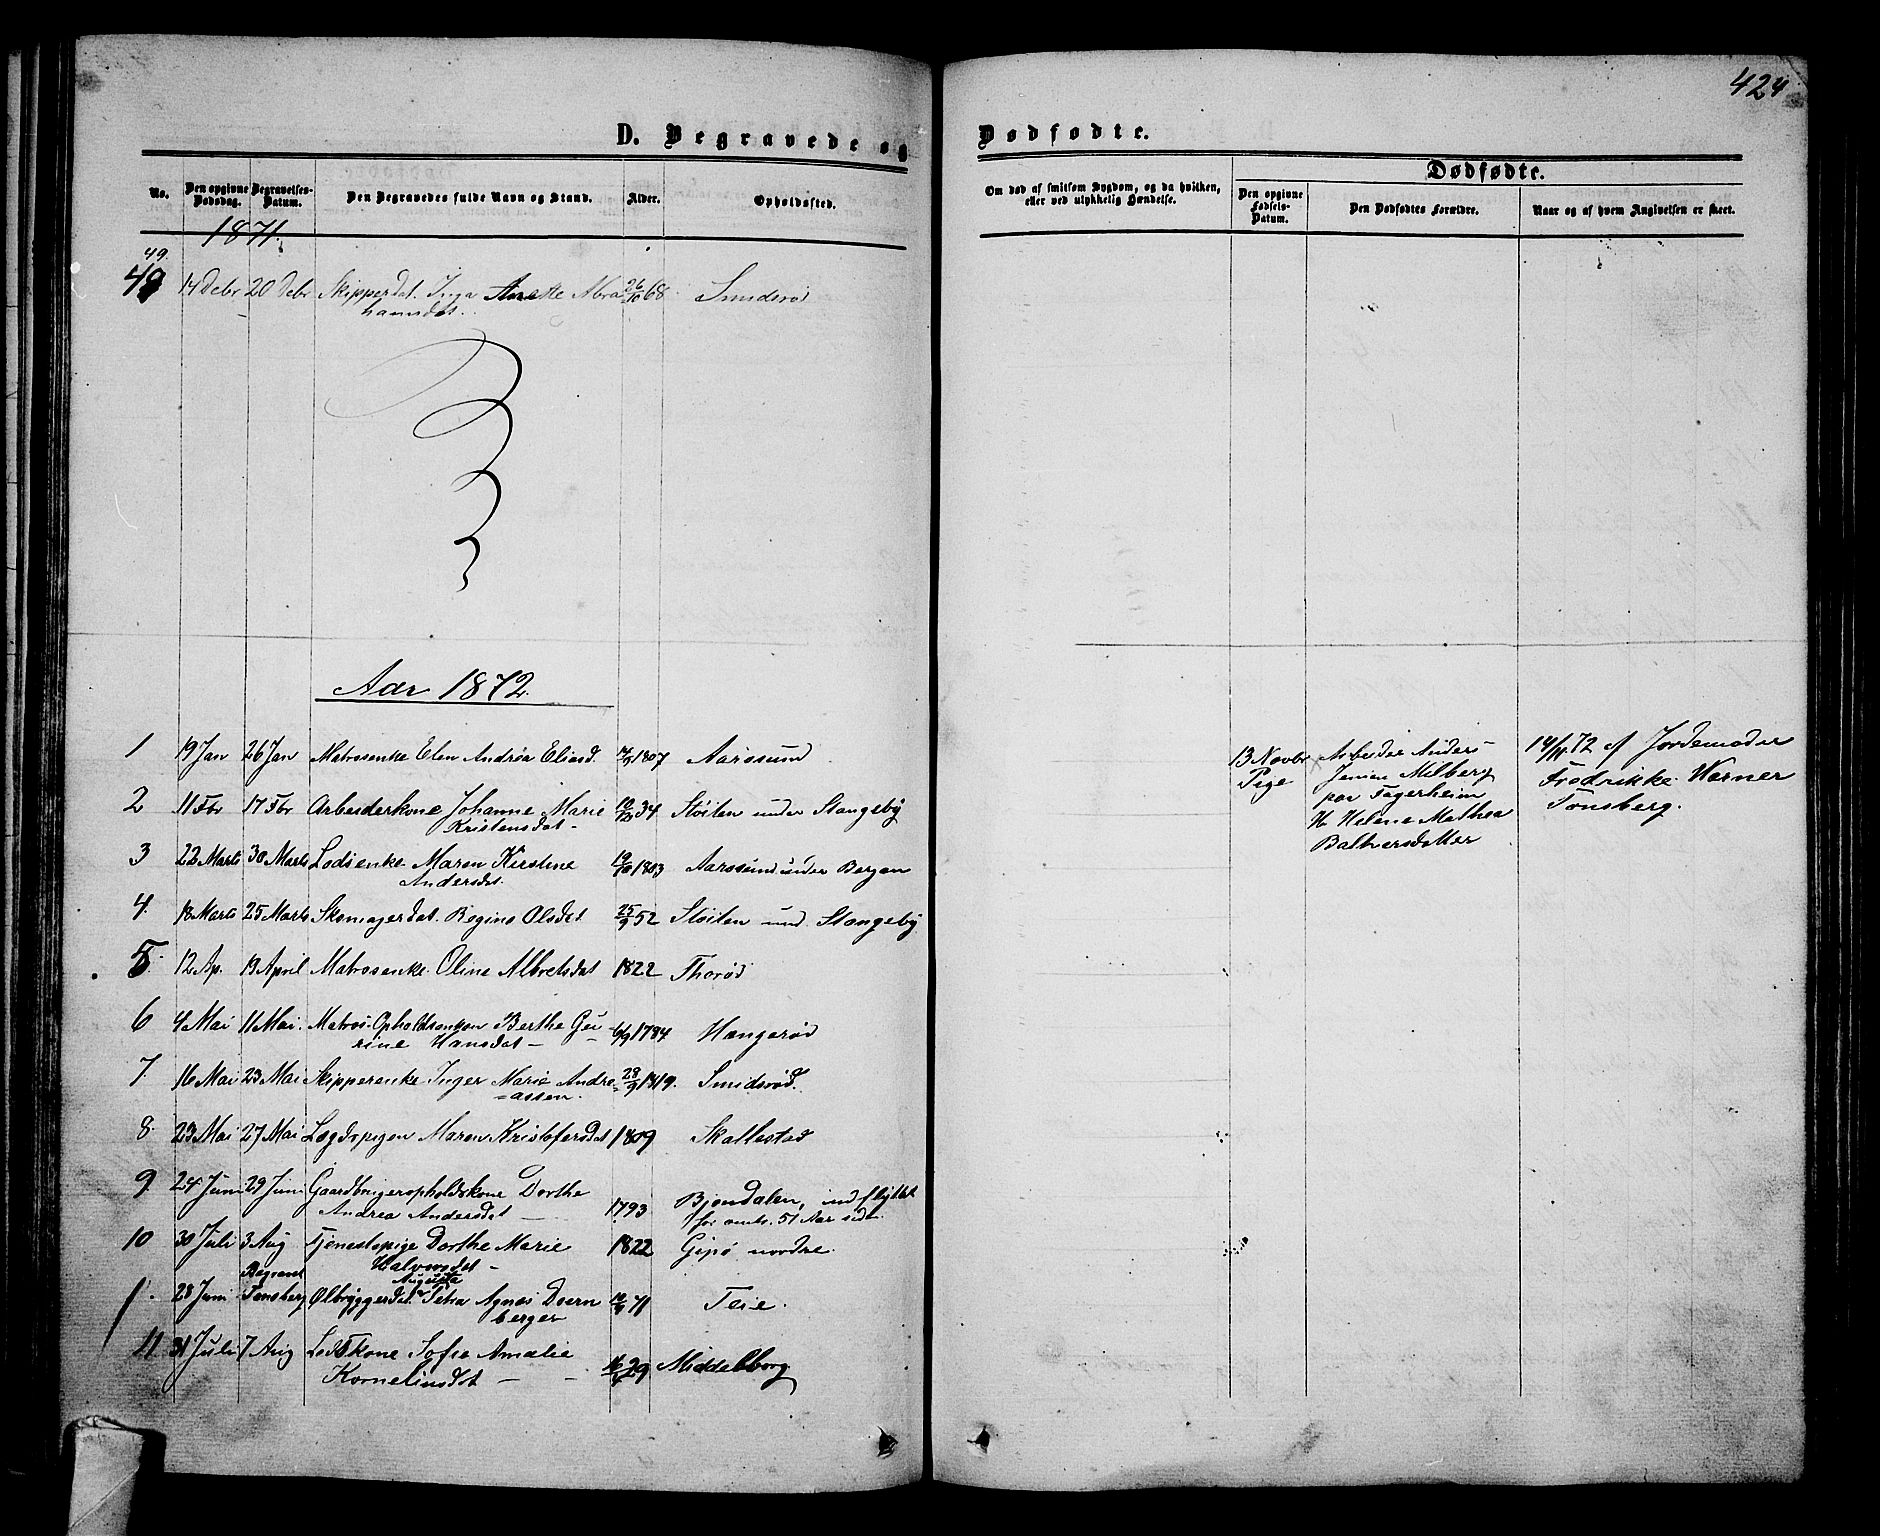 424
D. Begravede og Dødfødte.
No.
Den opgivne Dødsdag.
Begravelses-Datum.
Den Begravedes fulde Navn og Stand.
Alder.
Opholdssted.
Om død af smitsom Sygdom, og da hvilken, eller ved ulykkelig Hændelse.
Dødfødte.
Den opgivne Fødsels-Datum.
Den Dødfødtes Forældre.
Naar og af hvem Angivelsen er skeet.
1871.
49.
49 14 Debr 20 Debr Skipperdat. Inga Anette Abra 26/10 68 Smidsrød
hamsdat.
Aar 1872.
1 19 Jan 26 Jan Matrosenke Elen Andrea Eliasd. 1807 Aarøsund
2 11 Fbr 17 Fbr Arbeiderkone Johanne Marie 34 Støiten under Stangeby
Kristensdat -
3 22 Marts 30 Marts Lodsenke Maren Kirstine 1803 Aarøsund under Bergan
Andersdat.
4. 18 Marts 25 Marts Skomagerdat. Regine Olsdat 25/9 52 Støiten und. Stangeby
5. 12 Ap. 19 April Matrosenke. Oline Albretsdat 1822 Thorød
6 4 Mai 11 Mai. Matros. Opholdsenken Berthe Gu- 6/9 1784 Hængerød
rine Hansdat -
7. 16 Mai 23 Mai Skipperenke Inger Marie Andre 28/9 1819. Smidsrød.
=assen.
8. 23 Mai 27 Mai Lægdspigen Maren Kristofersdat 1809 Skallestad
9 24 Juni 29 Juni Gaardbrugeropholdskone Dorthe
Andrea Andersdat - 1793 Bjøndalen, indflyttet
for omtr. 51 Aar sidt.
10 30 Juli 3 Aug Tjenestepige Dorthe Marie 1822 Gipø nordre.
Halvorsdat -
Begravet Augusta
28 Juni Tønsberg Ølbryggerdat. Petra Agnes Doern 71 Teie.
berger
11 31 Juli 7 Aug Lodskone Sofie Amalie
Kornelinsdat - - 29 Middelborg
13 Novbr
Pige
Arbeider Anders
Jensen Melberg
paa Fagerheim
H. Helene Mathea
Balthersdatter
14/11 72 af Jordemoder
Fredrikke Werner
Tønsberg.